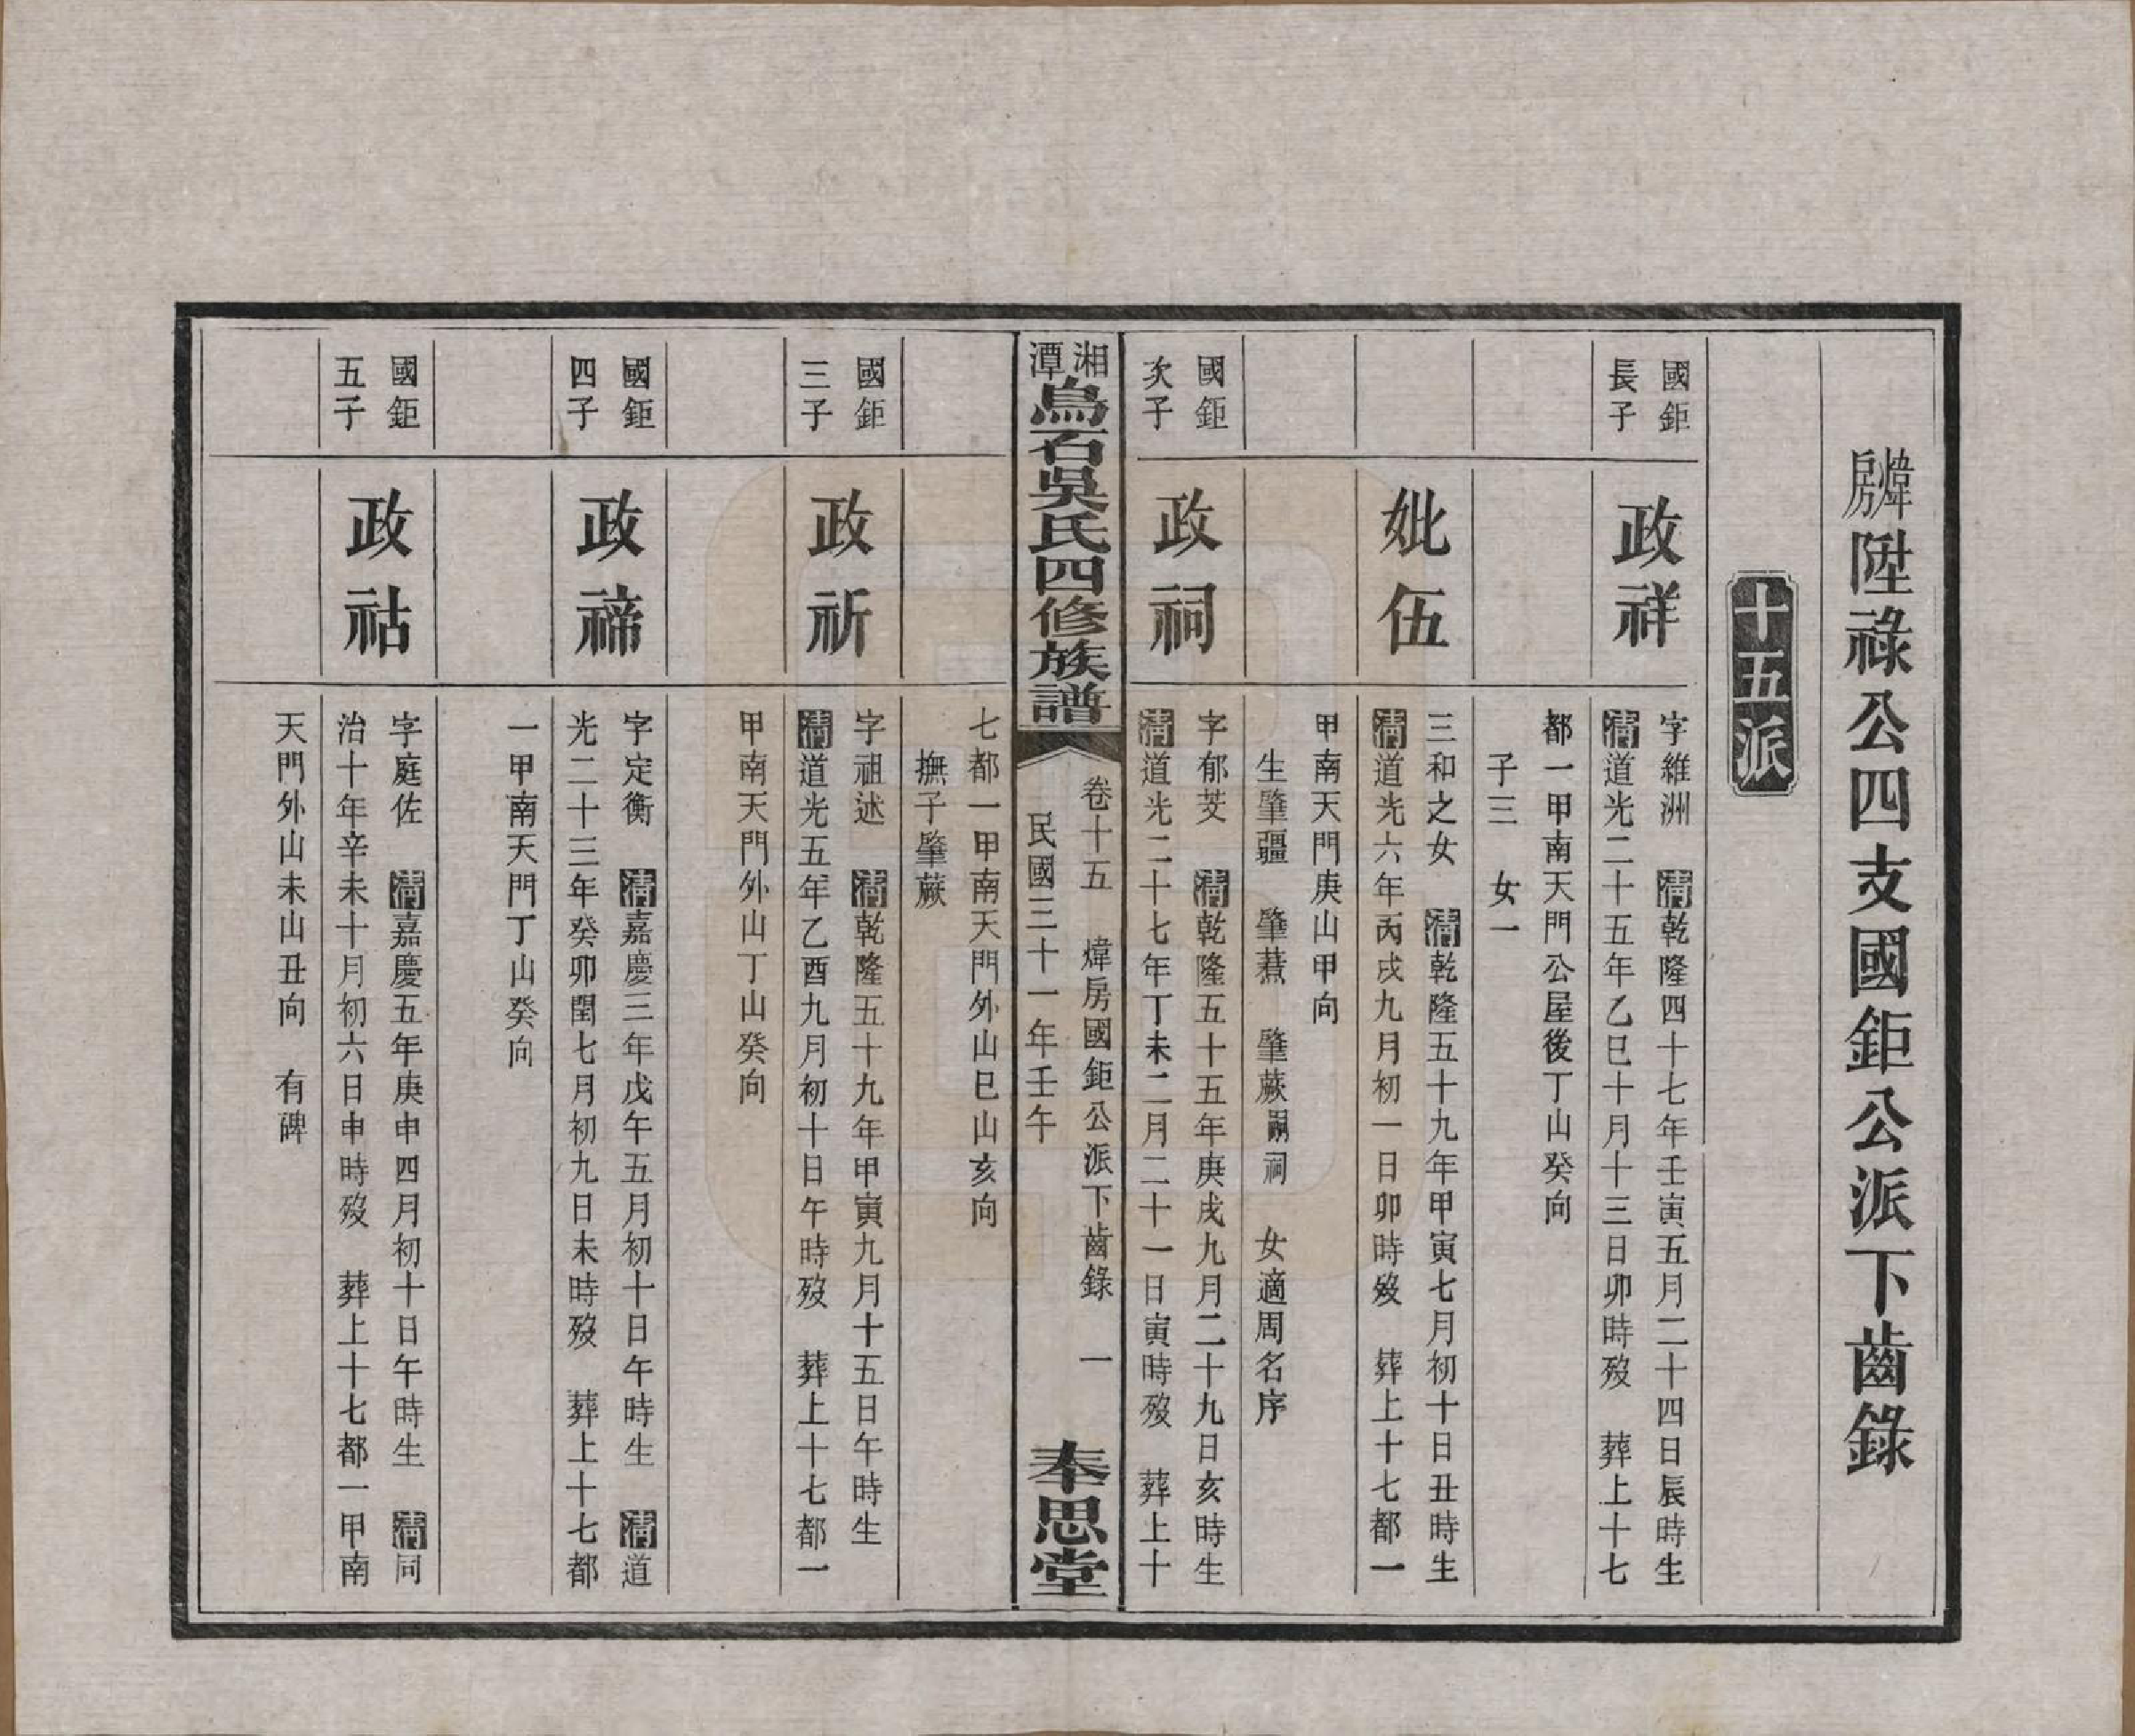 煒房陞祿公四支國鉅公派下齒錄
十五派
國鉅
長子
政祥
字維洲　清乾隆四十七年壬寅五月二十四日辰時生
清道光二十五年乙巳十月十三日卯時歿　葬上十七
都一甲南天門公屋後丁山癸向
子三　女一
妣伍
三和之女　清乾隆五十九年甲寅七月初十日丑時生
清道光六年丙戌九月初一日卯時歿　葬上十七都一
甲南天門庚山甲向
生肇疆　肇䕩　肇蕨嗣祠　女適周名序
國鉅
次子
政祠
字郁芠　清乾隆五十五年庚戌九月二十九日亥時生
清道光二十七年丁未二月二十一日寅時歿　葬上十
湘潭烏石吳氏四修族譜
卷十五　煒房國鉅公派下齒錄　一
民國三十一年壬午
奉思堂
七都一甲南天門外山巳山亥向
撫子肇蕨
國鉅
三子
政祈
字祖述　清乾隆五十九年甲寅九月十五日午時生
清道光五年乙酉九月初十日午時歿　葬上十七都一
甲南天門外山丁山癸向
國鉅
四子
政禘
字定衡　清嘉慶三年戊午五月初十日午時生　清道
光二十三年癸卯閏七月初九日未時歿　葬上十七都
一甲南天門丁山癸向
國鉅
五子
政祜
字庭佐　清嘉慶五年庚申四月初十日午時生　清同
治十年辛未十月初六日申時歿　葬上十七都一甲南
天門外山未山丑向　有碑